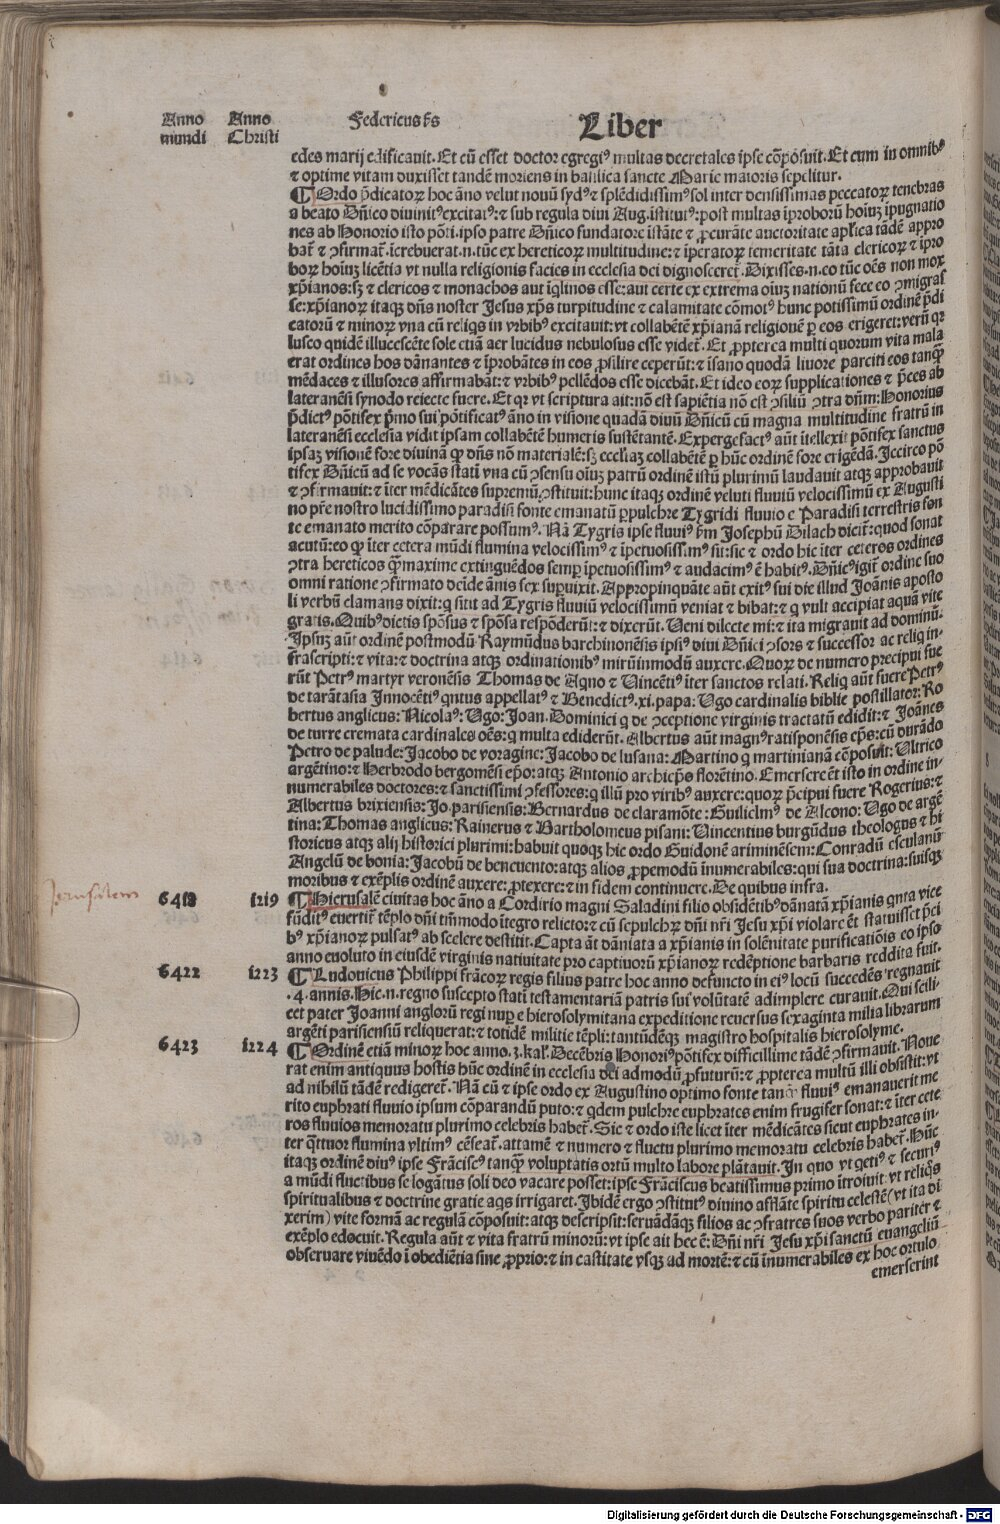 Anno mundi
Anno Christi
Federicus ẜs
Liber
edes marij edificauit. Et cũ esset doctor egregiꝰ multas decretales ip̃se cõposuit. Et cum in omnibꝰ
⁊ optime vitam duxisset tandẽ moriens in basilica sancte Marie maioris sepelitur.
¶ Ordo p̃dicatoꝝ hoc ãno velut nouũ sydꝰ ⁊ splẽdidissimꝰ sol inter densissimas peccatoꝝ tenebras
a beato Dñico diuinitꝰ excitatꝰ: ⁊ sub regula diui Aug. ĩstitutꝰ: post multas ĩproborũ hoiuꝫ ĩpugnatio
nes ab Honorio isto põti. ipso patre Dñico fundatore ĩstãte ⁊ ꝓcurãte auctoritate aplica tãdẽ appro
bat̃ ⁊ ꝯfirmat̃. Increbuerat. n. tũc ex hereticoꝝ multitudine: ⁊ ĩperatoꝝ temeritate tãta clericoꝝ ⁊ ĩpro
boꝝ hoiuꝫ licẽtia vt nulla religionis facies in ecclesia dei dignosceret̃. Dixisses. n. eo tũc oẽs non mox
xp̃ianos: sꝫ ⁊ clericos ⁊ monachos aut ĩqlinos esse: aut certe ex extrema oiuꝫ nationũ fece eo ꝯmigras
se: xp̃ianoꝝ itaqꝫ dñs noster Jesus xp̃s turpitudine ⁊ calamitate cõmotꝰ hunc potissimũ ordinẽ p̃di
catorũ ⁊ minoꝝ vna cũ reliqs in vrbibꝰ excitauit: vt collabẽtẽ xp̃ianã religionẽ ꝑ eos erigeret: verũ qꝛ
lusco quidẽ illucescẽte sole etiã aer lucidus nebulosus esse videt̃. Et ꝓpterea multi quorum vita mala
erat ordines hos dãnantes ⁊ ĩprobãtes in eos ꝓsilire ceperũt: ⁊ ĩsano quodã liuore parciti eos tanqꝫ
mẽdaces ⁊ illusores affirmabãt: ⁊ vrbibꝰ pellẽdos esse dicebãt. Et ideo eoꝝ supplicationes ⁊ p̃ces ab
lateranẽsi synodo reiecte fuere. Et qꝛ vt scriptura ait: nõ est sapiẽtia nõ est ꝯsiliũ ꝯtra dñm: Honorius
p̃dictꝰ põtifex p̃mo sui põtificatꝰ ãno in visione quadã diuũ Dñicũ cũ magna multitudine fratrũ in
lateranẽsi ecclesia vidit ipsam collabẽtẽ humeris sustẽtantẽ. Expergefactꝰ aũt ĩtellexit põtifex sanctus
ipsaꝫ visionẽ fore diuinã qꝫ dñs nõ materialẽ: sꝫ eccl̃iaꝫ collabẽtẽ ꝑ hũc ordinẽ fore erigẽdã. Iccirco põ
tifex Dñicũ ad se vocãs statĩ vna cũ ꝯsensu oiuꝫ patrũ ordinẽ istũ plurimũ laudauit atqꝫ approbauit
⁊ ꝯfirmauit: ⁊ ĩter mẽdicãtes supremũ ꝯstituit: hunc itaqꝫ ordinẽ veluti fluuiũ velocissimũ ex Augusti
no pr̃e nostro lucidissimo paradisi fonte emanatũ ꝑpulchre Tygridi fluuio e Paradisi terrestris fon
te emanato merito cõparare possumꝰ. Nã Tygris ipse fluuiꝰ ẜm Josephũ Dilach dicit̃: quod sonat
acutũ: eo qꝫ ĩter cetera mũdi flumina velocissimꝰ ⁊ ĩpetuosissimꝰ sit: sic ⁊ ordo hic ĩter ceteros ordines
ꝯtra hereticos qꝫ maxime extinguẽdos semꝑ ĩpetuosissimꝰ ⁊ audacimꝰ ẽ habitꝰ. Dñicꝰ igit̃ ordine suo
omni ratione ꝯfirmato deĩde ãnis sex supuixit. Appropinquãte aũt exitꝰ sui die illud Joãnis aposto
li verbũ clamans dixit: q sitit ad Tygris fluuiũ velocissimũ veniat ⁊ bibat: ⁊ q vult accipiat aquã vite
gratis. Quibꝰ dictis spõsus ⁊ spõsa respõderũt: ⁊ dixerũt. Ueni dilecte mi: ⁊ ita migrauit ad dominũ.
Ipsuꝫ aũt ordinẽ postmodũ Raymũdus barchinonẽsis ipsiꝰ diui Dñici ꝯsors ⁊ successor ac reliq in-
frascripti: ⁊ vita: ⁊ doctrina atqꝫ ordinationibꝰ mirũinmodũ auxere. Quoꝝ de numero precipui fue
rũt Petrꝰ martyr veronẽsis Thomas de Aqno ⁊ Uincẽtiꝰ ĩter sanctos relati. Reliq aũt fuere Petrꝰ
de tarãtasia Innocẽtiꝰ qntus appellatꝰ ⁊ Benedictꝰ. xi. papa: Ugo cardinalis biblie postillator: Ro
bertus anglicus: Nicolaꝰ: Ugo: Joan. Dominici q de ꝯceptione virginis tractatũ edidit: ⁊ Joãnes
de turre cremata cardinales oẽs: q multa ediderũt. Albertus aũt magnꝰ ratisponẽsis ep̃s: cũ durãdo
Petro de palude: Jacobo de voragine: Jacobo de lusana: Martino q martinianã cõposuit: Ultrico
argẽtino: ⁊ Herbrodo bergomẽsi ep̃o: atqꝫ Antonio archiep̃s florẽtino. Emersere ẽt isto in ordine in-
numerabiles doctores: ⁊ sanctissimi ꝯfessores: q illũ pro viribꝰ auxere: quoꝝ p̃cipui fuere Rogerius: ⁊
Albertus brixiensis: Jo. parisensis: Bernardus de claramõte: Guilielmꝰ de Alcono: Ugo de argẽ
tina: Thomas anglicus: Rainerus ⁊ Bartholomeus pisani: Uincentius burgũdus theologus ⁊ hi
storicus atqꝫ alij historici plurimi: habuit quoqꝫ hic ordo Guidonẽ ariminẽsem: Conradũ esculanũ
Angelũ de bonia: Jacobũ de beneuento: atqꝫ alios ꝓpemodũ ĩnumerabiles: qui sua doctrina: suisqꝫ
moribus ⁊ exẽplis ordinẽ auxere: ꝓtexere: ⁊ in fidem continuere. De quibus infra.
Jerusalem
6418 1219 ¶ Hierusalẽ ciuitas hoc ãno a Cordirio magni Saladini filio obsidẽtibꝰ dãnatã xp̃ianis qnta vice
fũditꝰ euertit̃ tẽplo dñi tm̃modo ĩtegro relicto: ⁊ cũ sepulchꝝ dñi nr̃i Jesu xp̃i violare ẽt statuisset p̃ci
bꝰ xp̃ianoꝝ pulsatꝰ ab scelere destitit. Capta aũt dãniata a xp̃ianis in solẽnitate purificatiõis eo ipso
anno euoluto in eiusdẽ virginis natiuitate pro captiuorũ xp̃ianoꝝ redẽptione barbaris reddita fuit.
6422 1223 ¶ Ludouicus Philippi frãcoꝝ regis filius patre hoc anno defuncto in eiꝰ locũ succedẽs regnauit
.4. annis. Hic. n. regno suscepto statĩ testamentariã patris sui volũtatẽ adimplere curauit. Qui scili-
cet pater Joanni anglorũ regi nuꝑ e hierosolymitana expeditione reuersus sexaginta milia librarum
argẽti parisiensiũ reliquerat: ⁊ totidẽ militie tẽpli: tantũdẽqꝫ magistro hospitalis hierosolyme.
6423 1224 ¶ Ordinẽ etiã minoꝝ hoc anno. 3. kal̃. Decẽbris Honoriꝰ põtifex difficillime tãdẽ ꝯfirmauit. Noue
rat enim antiquus hostis hũc ordinẽ in ecclesia dei admodũ ꝓfuturũ: ⁊ ꝓpterea multũ illi obsistit: vt
ad nihilũ tãdẽ redigeret̃. Nã cũ ⁊ ipse ordo ex Augustino optimo fonte tanqꝫ fluuiꝰ emanauerit me
rito euphrati fluuio ipsum cõparandũ puto: ⁊ qdem pulchre euphrates enim frugifer sonat: ⁊ ĩter cete
ros fluuios memoratu plurimo celebris habet̃. Sic ⁊ ordo iste licet ĩter mẽdicãtes sicut euphrates in-
ter qttuor flumina vltimꝰ cẽseat̃. attamẽ ⁊ numero ⁊ fluctu plurimo memoratu celebris habet̃. Hũc
itaqꝫ ordinẽ diuꝰ ipse Frãciscꝰ tanqꝫ voluptatis ortũ multo labore plãtauit. In quo vt getiꝰ ⁊ securiꝰ
a mũdi fluctibus se logãtus soli deo vacare posset: ipse Frãciscus beatissimus primo ĩtroiuit vt reliqs
spiritualibus ⁊ doctrine gratie aqs irrigaret. Ibidẽ ergo ꝯstitutꝰ diuino afflãte spiritu celestẽ (vt ita di
xerim) vite formã ac regulã cõposuit: atqꝫ descripsit: seruãdãqꝫ filios ac ꝯfratres suos verbo pariter ⁊
exẽplo edocuit. Regula aũt ⁊ vita fratrũ minorũ: vt ipse ait hec ẽ: Dñi nr̃i Jesu xp̃i sanctũ euangeliũ
obseruare viuẽdo ĩ obediẽtia sine ꝓprio: ⁊ in castitate vsqꝫ ad mortẽ: ⁊ cũ ĩnumerabiles ex hoc ortulo
emerserint
Digitalisierung gefördert durch die Deutsche Forschungsgemeinschaft - DFG